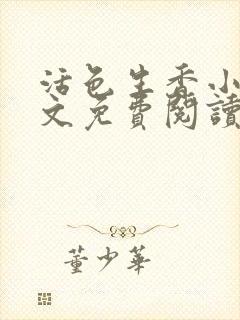 活色生香小
文免費閱讀
董少華